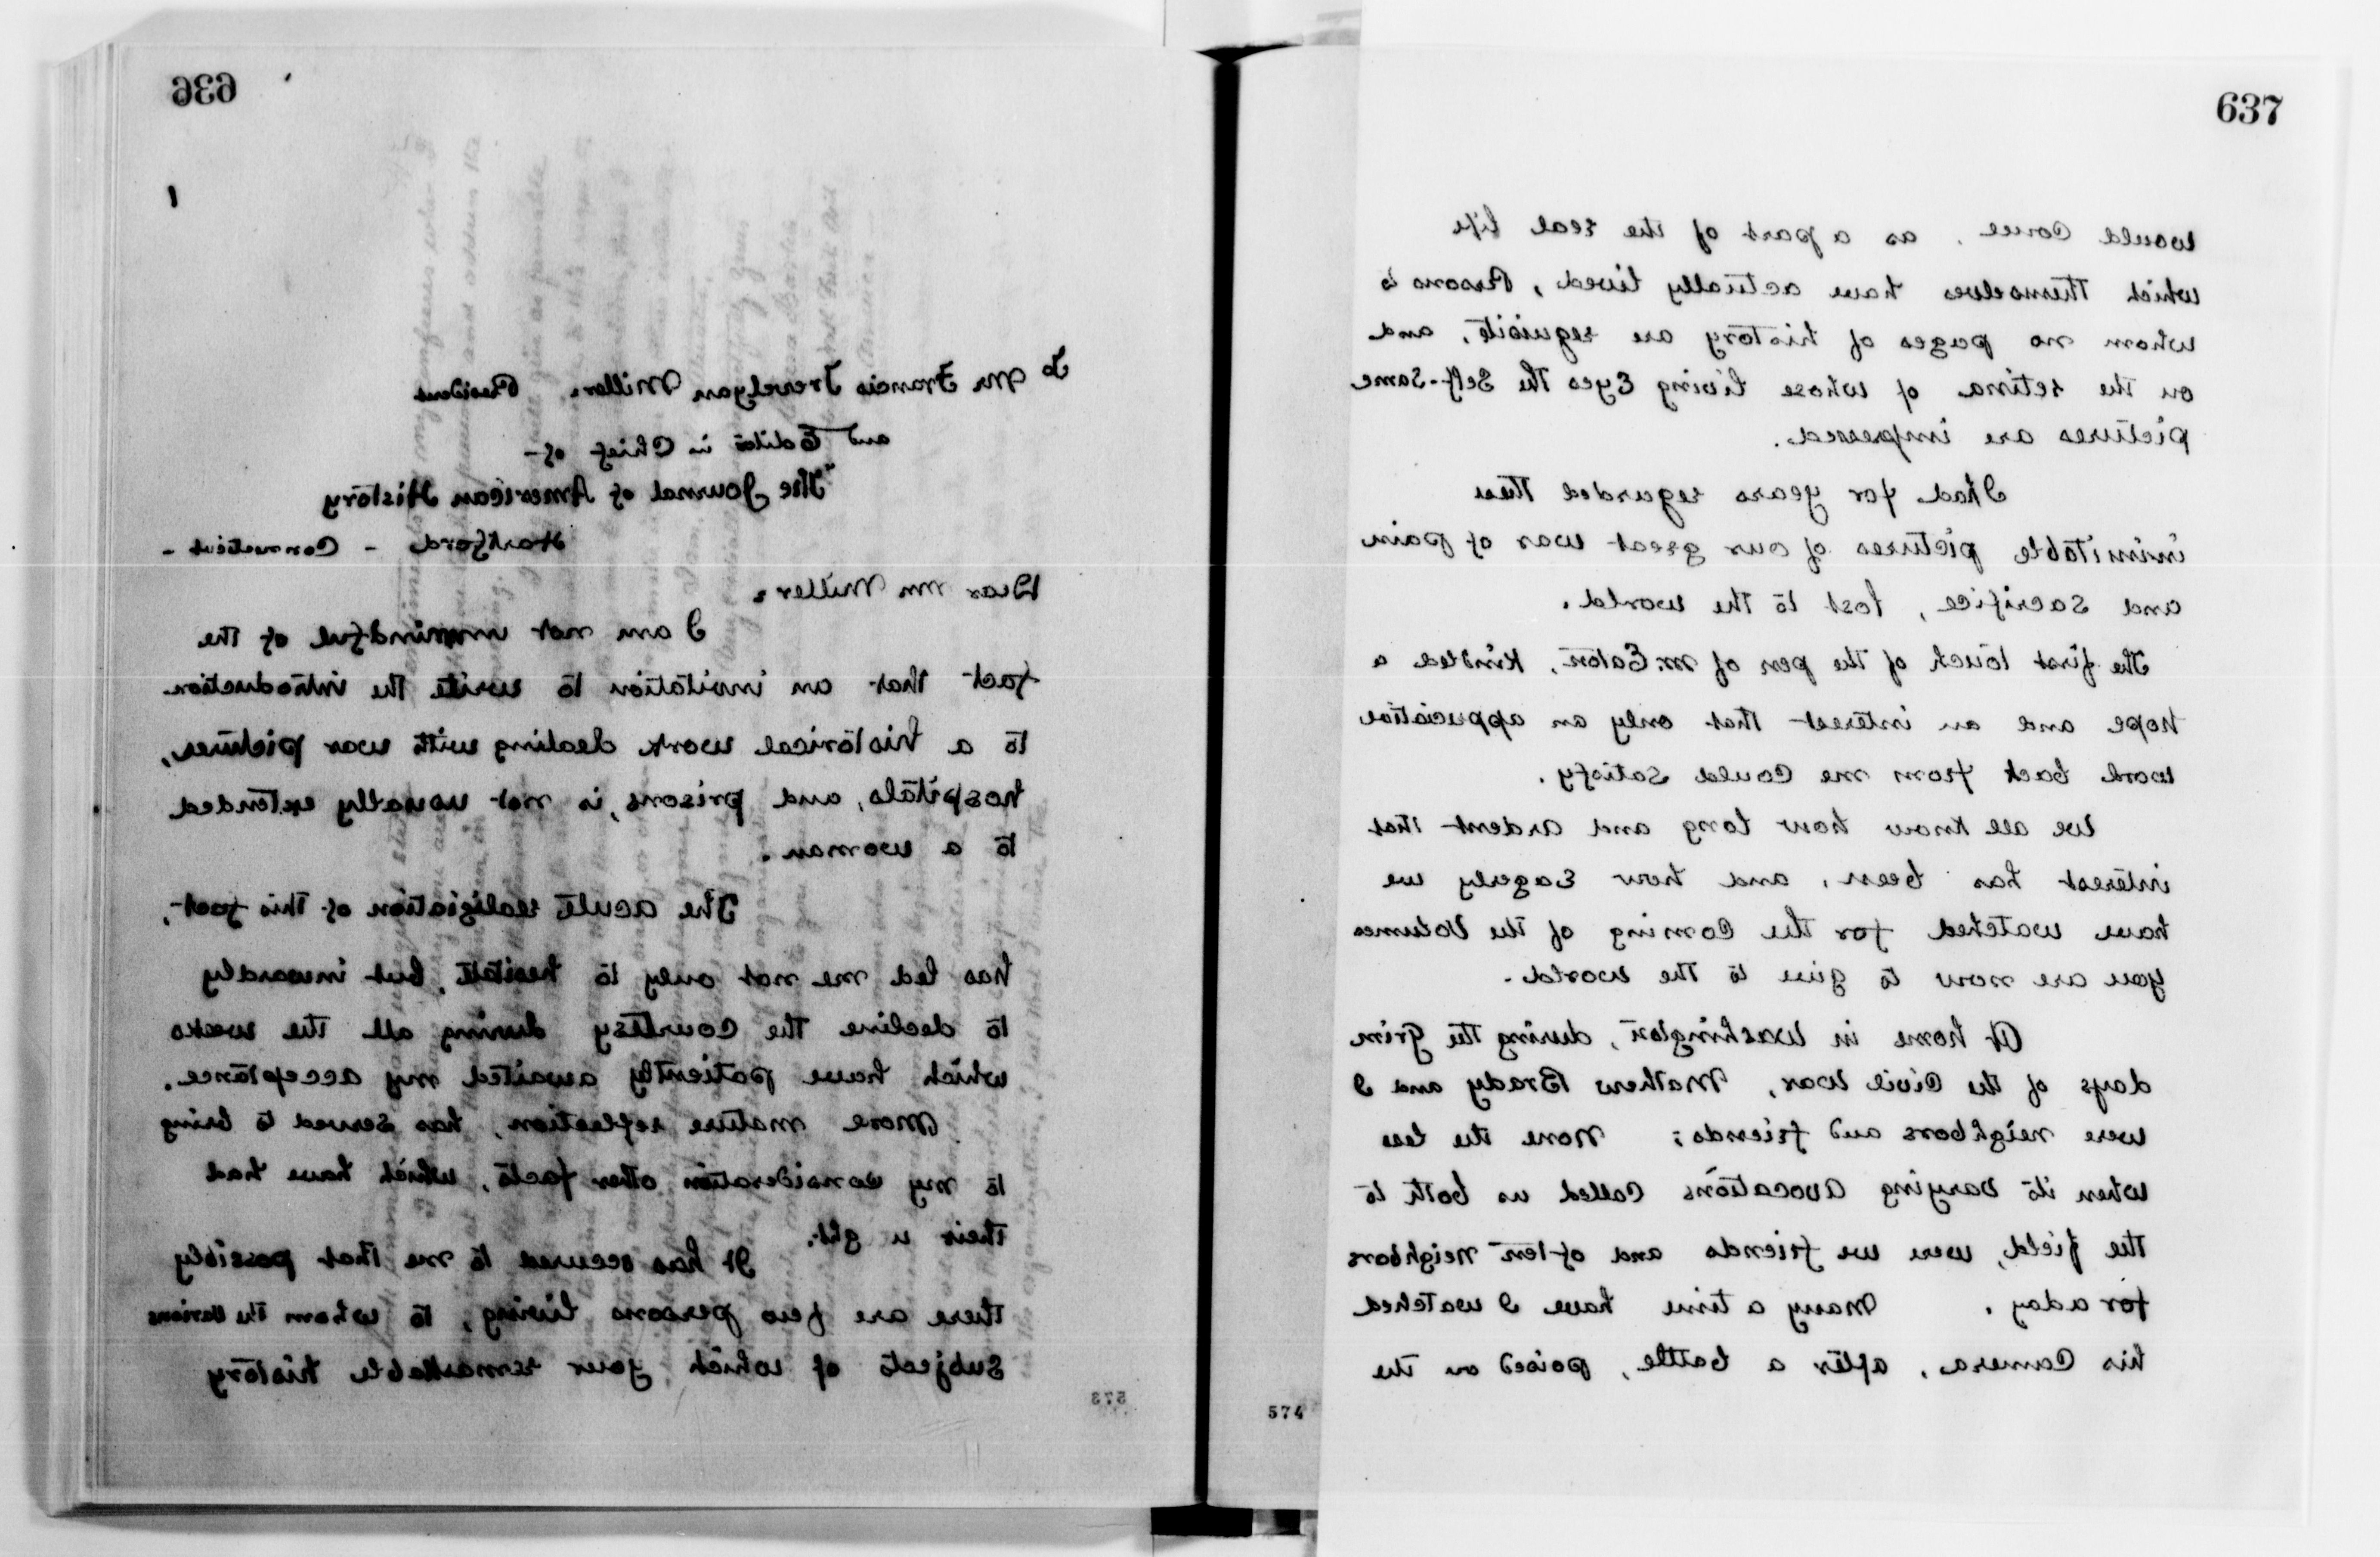 636
1
To Mr Francis Trevelyan Miller. President
and Editor in Chief of -
"The Journal of American History
Hartford - Connecticut -
Dear Mr Miller:
I am not unmindful of the
fact that an invitation to write the introduction
to a historical work dealing with war pictures,
hospitals, and prisons, is not usually extended
to a woman.
The acute realization of this fact,
has led me not only to hesitate, but inwardly
to decline the courtesy during all the weeks
which have patiently awaited my acceptance.
More mature reflection, has served to bring
to my consideration other facts, which have had
their
It has occured to me that possibly
there are few persons living, to whom the various
subjects of which your remarkable history
573
637
would come, as a part of the real life
which themselves have actually lived, Persons to
whom no pages of history are requisite, and
on the retina of whose living Eyes the self-same
pictures are impressed.
I had for years regarded these
inimitable pictures of our great war of pain
and sacrifice, lost to the world.
The first touch of the pen of Mr. Eaton, kindled a
hope and an interest that only an appreciative
word back from me could satisfy.
We all know how long and ardent that
interest has been, and how Eagerly we
have watched for the coming of the Volumes
you are now to give to the world.
At home in Washington, during the grim
days of the Civil War, Mathew Brady and I
were neighbors and friends; None the less
when its varying avocations called us both to
the field, were we friends and often neighbors
for a day. Many a time have I watched
his Camera, after a battle, poised on the
574